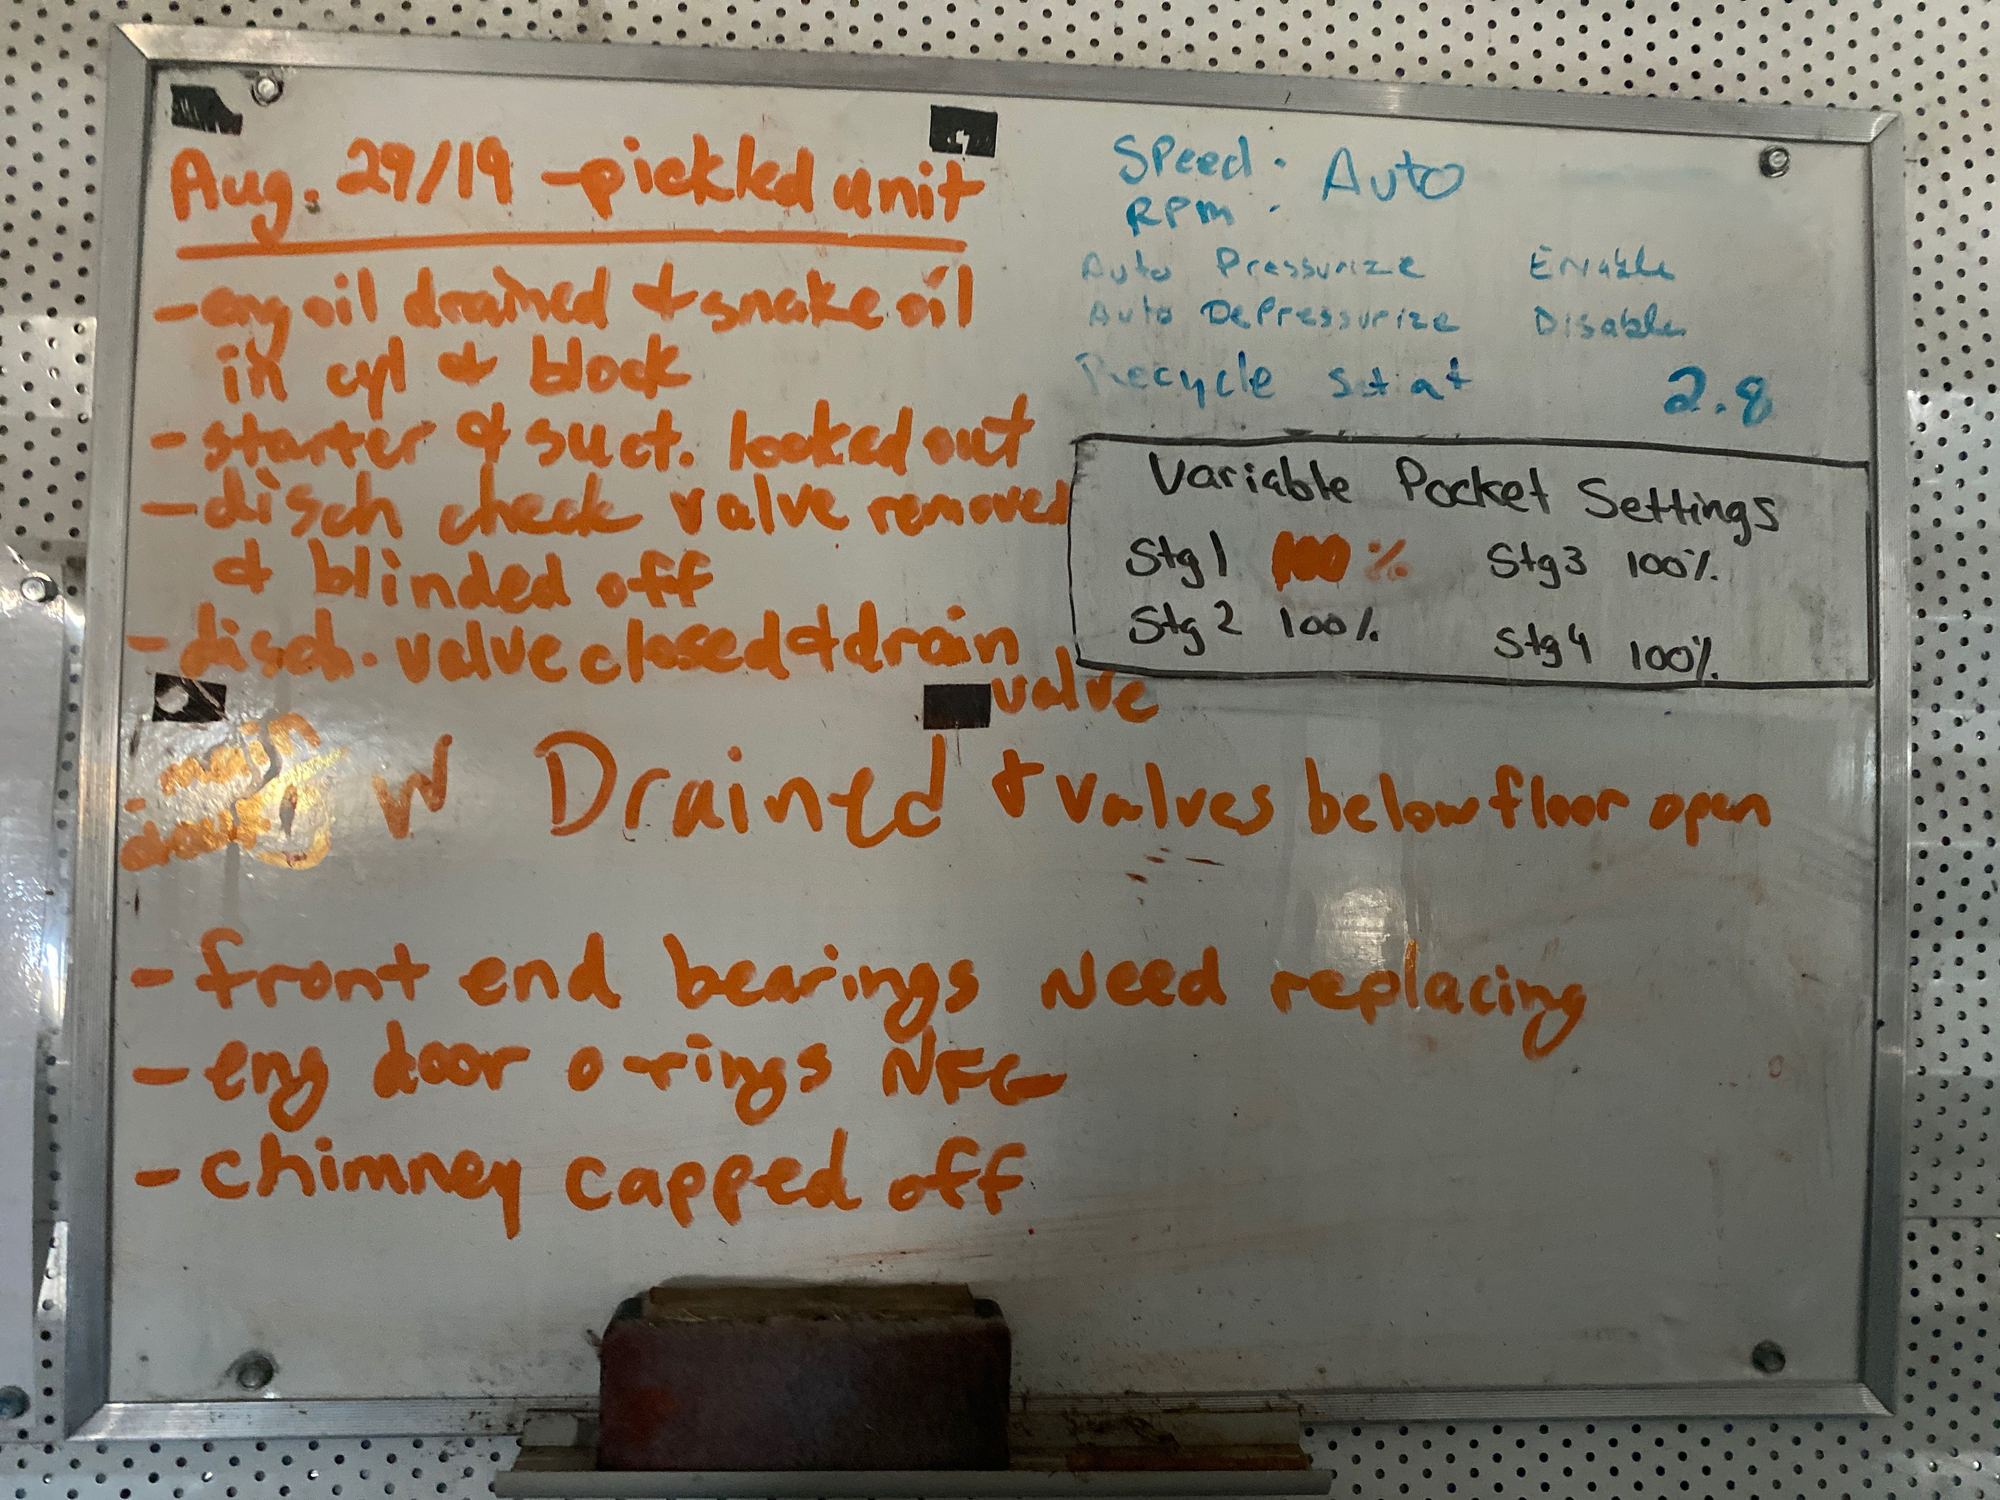 Aug. 29/19 - pickled unit
- eng oil drained & snake oil
in cyl & block
- starter & suct. locked out
- disch check valve removed
& blinded off
- disch. valve closed & drain
valve
- main
W Drained & valves below floor open
- front end bearings Need replacing
- eng door o-rings NFG
- chimney capped off
Speed: Auto
RPM :
Auto Pressurize Enable
Auto DePressurize Disable
Recycle Set at 2.8
Variable Pocket Settings
Stg 1 100% Stg 3 100%
Stg 2 100% Stg 4 100%